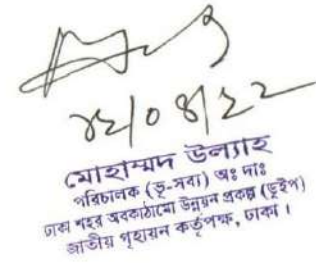 মোহাম্মদ উল্যাহ
পরিচালক (ভূ-সব্য) অঃ দাঃ
ঢাকা শহর অবকাঠামো উন্নয়ন প্রকল্প (ডুইপ)
জাতীয় গৃহায়ন কর্তৃপক্ষ, ঢাকা।